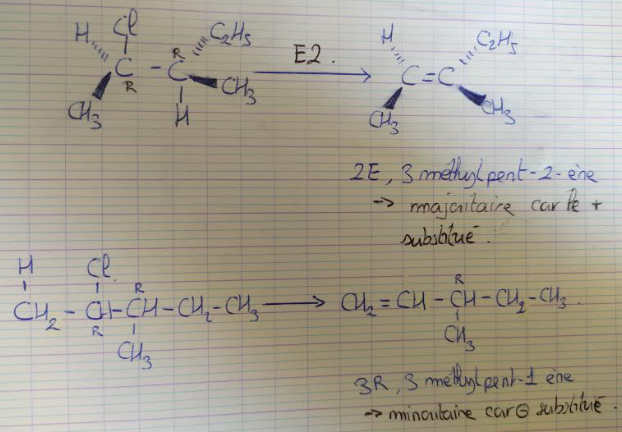 Cl
H C₂H₅ E2. H C₂H₅
R
C - C → C=C
R
CH₃ CH₃ CH₃ CH₃
H
2E, 3 méthylpent-2-ène
→ majoritaire car le +
substitué.
H Cl R
CH₂ - CH - CH - CH₂ - CH₃ → CH₂ = CH - CH - CH₂ - CH₃.
R R
CH₃ CH₃
3R, 3 méthylpent-1 ène
→ minoritaire car ⊖ substitué.